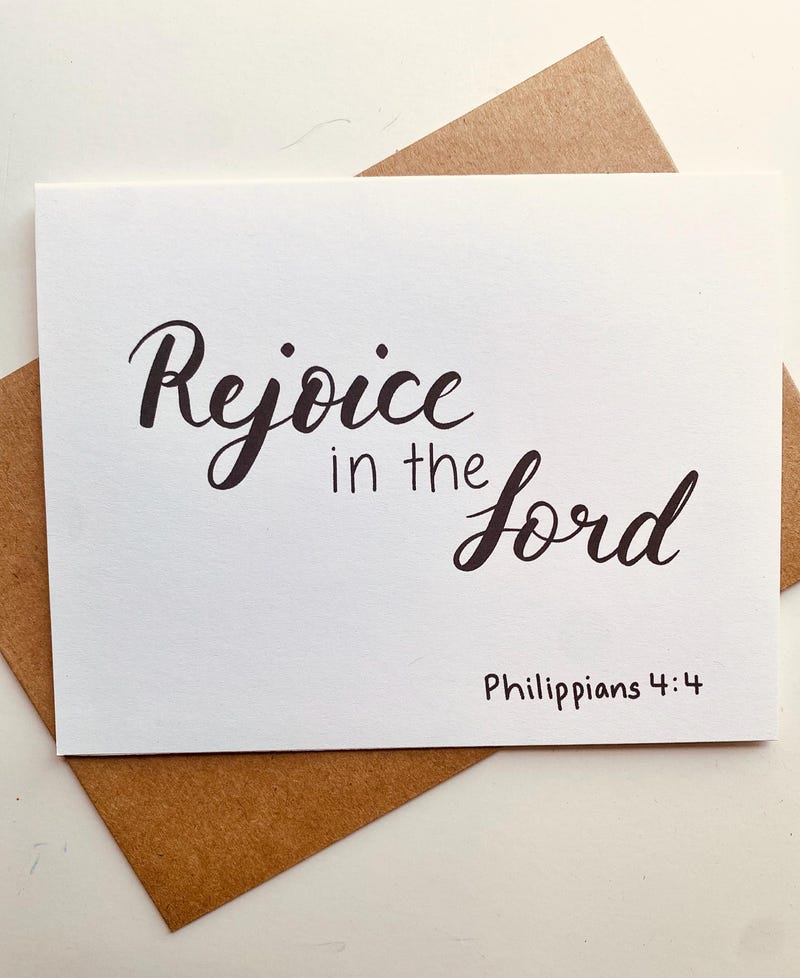 Rejoice
in the
Lord
Philippians 4:4